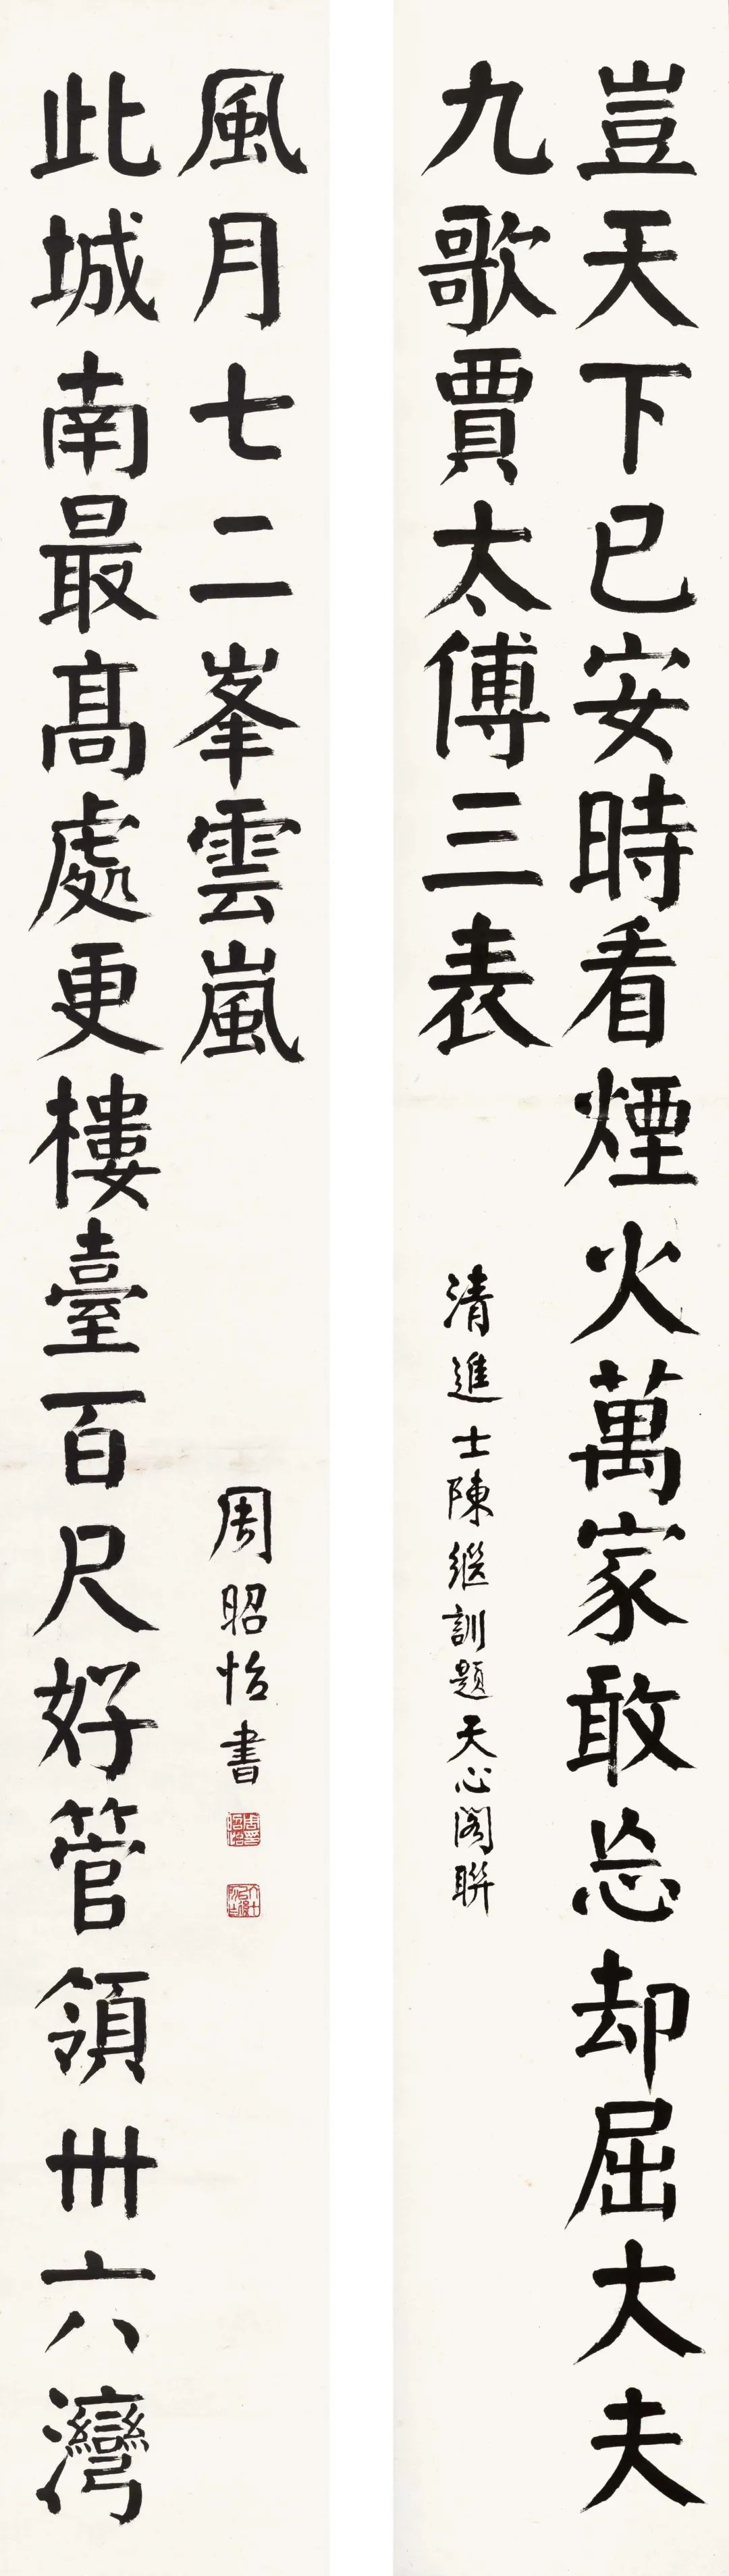 豈天下已安時看煙火萬家敢忘却屈大夫
九歌賈太傅三表
清進士陳繼訓題天心閣聯
此城南最高處更樓臺百尺好管領卅六灣
風月七二峯雲嵐
周昭怡書